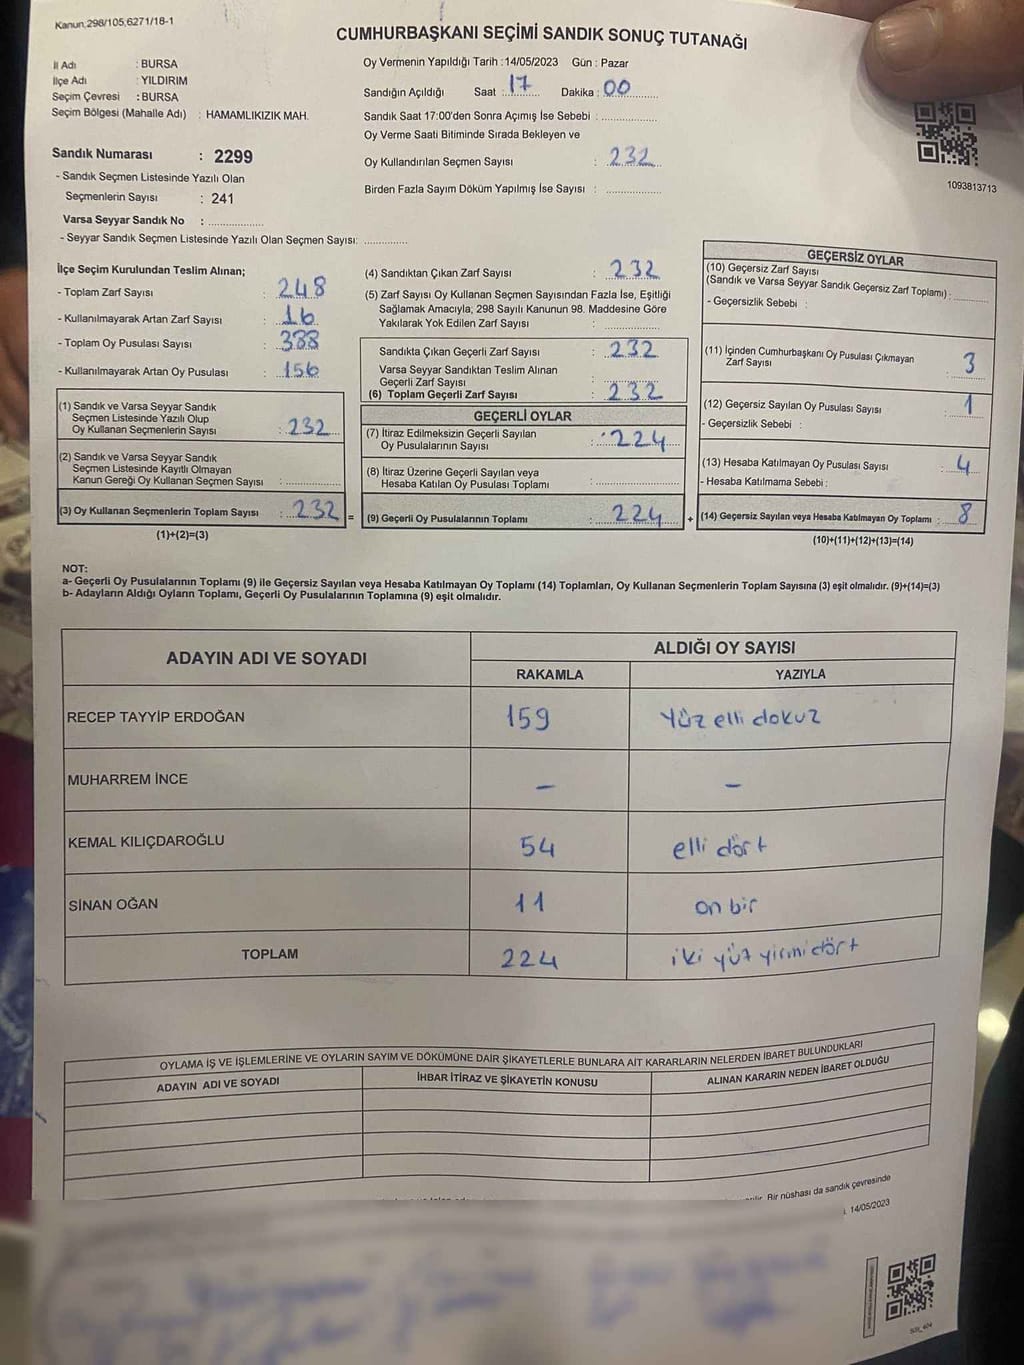 Kanun;298/105,6271/18-1
CUMHURBAŞKANI SEÇİMİ SANDIK SONUÇ TUTANAĞI
İl Adı : BURSA
İlçe Adı : YILDIRIM
Seçim Çevresi : BURSA
Seçim Bölgesi (Mahalle Adı) : HAMAMLIKIZIK MAH.
Oy Vermenin Yapıldığı Tarih :14/05/2023 Gün : Pazar
Sandığın Açıldığı Saat : 17 Dakika : 00
Sandık Saat 17:00'den Sonra Açımış İse Sebebi :
Oy Verme Saati Bitiminde Sırada Bekleyen ve
Oy Kullandırılan Seçmen Sayısı : 232
Birden Fazla Sayım Döküm Yapılmış İse Sayısı :
1093813713
Sandık Numarası : 2299
- Sandık Seçmen Listesinde Yazılı Olan
Seçmenlerin Sayısı : 241
Varsa Seyyar Sandık No :
- Seyyar Sandık Seçmen Listesinde Yazılı Olan Seçmen Sayısı:
İlçe Seçim Kurulundan Teslim Alınan;
- Toplam Zarf Sayısı : 248
- Kullanılmayarak Artan Zarf Sayısı : 16
- Toplam Oy Pusulası Sayısı : 388
- Kullanılmayarak Artan Oy Pusulası : 156
(1) Sandık ve Varsa Seyyar Sandık
Seçmen Listesinde Yazılı Olup
Oy Kullanan Seçmenlerin Sayısı : 232
(2) Sandık ve Varsa Seyyar Sandık
Seçmen Listesinde Kayıtlı Olmayan
Kanun Gereği Oy Kullanan Seçmen Sayısı :
(3) Oy Kullanan Seçmenlerin Toplam Sayısı : 232 =
(1)+(2)=(3)
(4) Sandıktan Çıkan Zarf Sayısı : 232
(5) Zarf Sayısı Oy Kullanan Seçmen Sayısından Fazla İse, Eşitliği
Sağlamak Amacıyla; 298 Sayılı Kanunun 98. Maddesine Göre
Yakılarak Yok Edilen Zarf Sayısı :
Sandıkta Çıkan Geçerli Zarf Sayısı : 232
Varsa Seyyar Sandıktan Teslim Alınan
Geçerli Zarf Sayısı :
(6) Toplam Geçerli Zarf Sayısı : 232
GEÇERLİ OYLAR
(7) İtiraz Edilmeksizin Geçerli Sayılan
Oy Pusulalarının Sayısı : 224
(8) İtiraz Üzerine Geçerli Sayılan veya
Hesaba Katılan Oy Pusulası Toplamı :
(9) Geçerli Oy Pusulalarının Toplamı : 224 +
GEÇERSİZ OYLAR
(10) Geçersiz Zarf Sayısı
(Sandık ve Varsa Seyyar Sandık Geçersiz Zarf Toplamı) :
- Geçersizlik Sebebi :
(11) İçinden Cumhurbaşkanı Oy Pusulası Çıkmayan
Zarf Sayısı : 3
(12) Geçersiz Sayılan Oy Pusulası Sayısı : 1
- Geçersizlik Sebebi :
(13) Hesaba Katılmayan Oy Pusulası Sayısı : 4
- Hesaba Katılmama Sebebi :
(14) Geçersiz Sayılan veya Hesaba Katılmayan Oy Toplamı : 8
(10)+(11)+(12)+(13)=(14)
NOT:
a- Geçerli Oy Pusulalarının Toplamı (9) ile Geçersiz Sayılan veya Hesaba Katılmayan Oy Toplamı (14) Toplamları, Oy Kullanan Seçmenlerin Toplam Sayısına (3) eşit olmalıdır. (9)+(14)=(3)
b- Adayların Aldığı Oyların Toplamı, Geçerli Oy Pusulalarının Toplamına (9) eşit olmalıdır.
ADAYIN ADI VE SOYADI
ALDIĞI OY SAYISI
RAKAMLA YAZIYLA
RECEP TAYYİP ERDOĞAN 159 Yüz elli dokuz
MUHARREM İNCE - -
KEMAL KILIÇDAROĞLU 54 elli dört
SİNAN OĞAN 11 on bir
TOPLAM 224 iki yüz yirmi dört
OYLAMA İŞ VE İŞLEMLERİNE VE OYLARIN SAYIM VE DÖKÜMÜNE DAİR ŞİKAYETLERLE BUNLARA AİT KARARLARIN NELERDEN İBARET BULUNDUKLARI
ADAYIN ADI VE SOYADI İHBAR İTİRAZ VE ŞİKAYETİN KONUSU ALINAN KARARIN NEDEN İBARET OLDUĞU
Bir nüshası da sandık çevresinde
14/05/2023